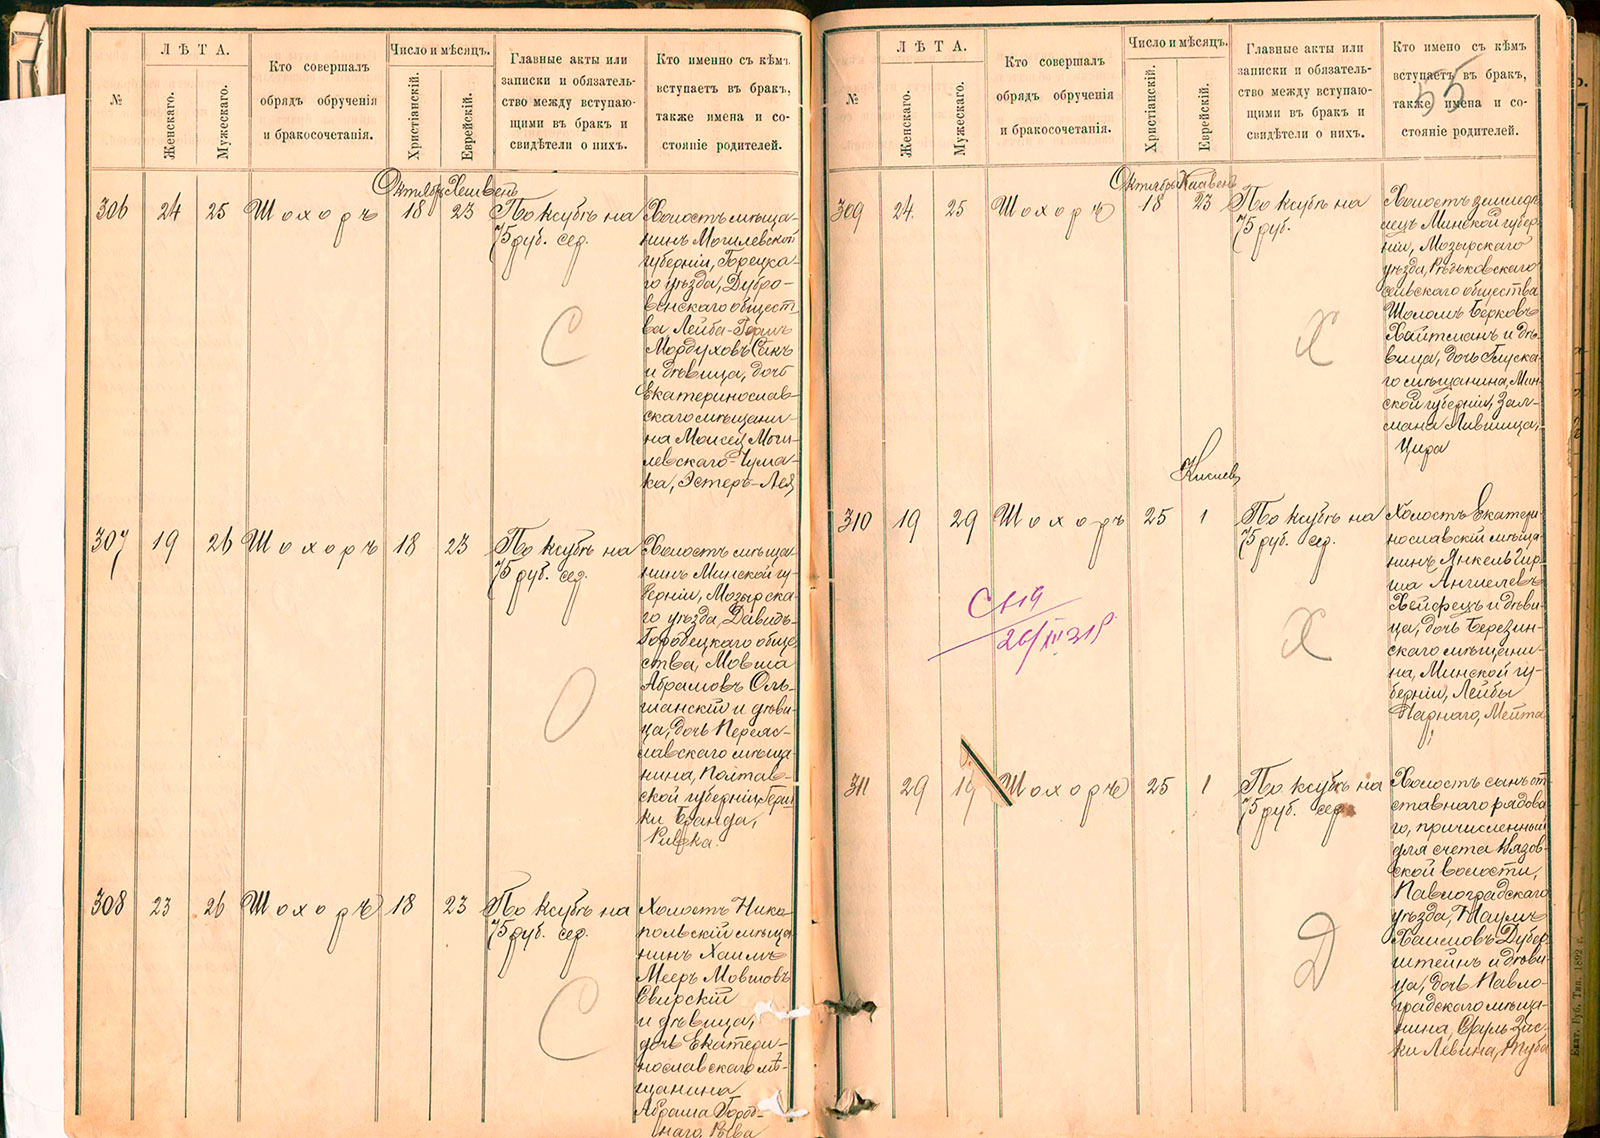 №
ЛѢТА.
Женскаго.
Мужескаго.
Кто совершалъ
обрядъ обрученія
и бракосочетанія.
Число и мѣсяцъ.
Христіанскій.
Еврейскій.
Главные акты или
записки и обязатель-
ство между вступаю-
щими въ бракъ и
свидѣтели о нихъ.
Кто именно съ кѣмъ
вступаетъ въ бракъ,
также имена и со-
стояніе родителей.
Октябрь Хешвень
306 24 25 Шохоръ 18 23
По ксубѣ на
75 руб. сер.
С
Холостъ мѣща-
нинъ Могилевской
губерніи, Горецка-
го уѣзда, Дубро-
венскаго общест
ва Лейба-Герцъ
Мордуховъ Сѣкъ
и дѣвица, дочь
Екатеринослав-
скаго мѣщани-
на Моисея Моги-
левскаго-Чума-
ка, Эстеръ-Лея
307 19 26 Шохоръ 18 23
По ксубѣ на
75 руб. сер.
О
Холостъ мѣща
нинъ Минской гу-
берніи, Мозырска-
го уѣзда, Давидъ-
Городецкаго обще
ства, Мовша
Абрамовъ Оль-
шанскій и дѣви-
ца, дочь Переяс-
лавскаго мѣща-
нина, Полтав-
ской губерніи,
ки Бранда,
Ривка.
308 23 26 Шохоръ 18 23
По ксубѣ на
75 руб. сер.
С
Холостъ Нико
польскій мѣща
нинъ Хаимъ
Мееръ Мовшовъ
Свирскій
и дѣвица,
дочь Екатери-
нославскаго мѣ-
щанина
Абрама Город-
наго, Рѣва
№
ЛѢТА.
Женскаго.
Мужескаго.
Кто совершалъ
обрядъ обрученія
и бракосочетанія.
Число и мѣсяцъ.
Христіанскій.
Еврейскій.
Главные акты или
записки и обязатель-
ство между вступаю-
щими въ бракъ и
свидѣтели о нихъ.
Кто имено съ кѣмъ
вступаетъ въ бракъ,
также имена и со-
стояніе родителей.
55
Октябрь
309 24 25 Шохоръ 18 23
По ксубѣ на
75 руб.
Х
Холостъ землед
лецъ Минской губер-
ніи, Мозырскаго
уѣзда,
сельскаго общества
Шоломъ Берковъ
Хайтманъ и дѣ-
вица, дочь Глуска-
го мѣщанина, Мин-
ской губерніи, Зал-
мана Лившица,
Цира
Кислев
310 19 29 Шохоръ 25 1
По ксубѣ на
75 руб. сер.
Х
Холостъ Екатери-
нославскій мѣща-
нинъ Янкель Гир-
ша
Хейфецъ и дѣви-
ца, дочь Березин-
скаго мѣщани-
на, Минской гу-
берніи, Лейбы
Парнаго, Мейта
26/III 31
311 29 19 Шохоръ 25 1
По ксубѣ на
75 руб. сер.
Д
Холостъ сынъ от
ставнаго рядова
го, причисленный
для счета Вязов-
ской волости,
Павлоградскаго
уѣзда, Наумъ
Хаимовъ Дубер
штейнъ и дѣви-
ца, дочь Павло-
градскаго мѣща-
нина, Сруль Зис-
ки Левина,
Екат. Губ. Тип. 1892 г.